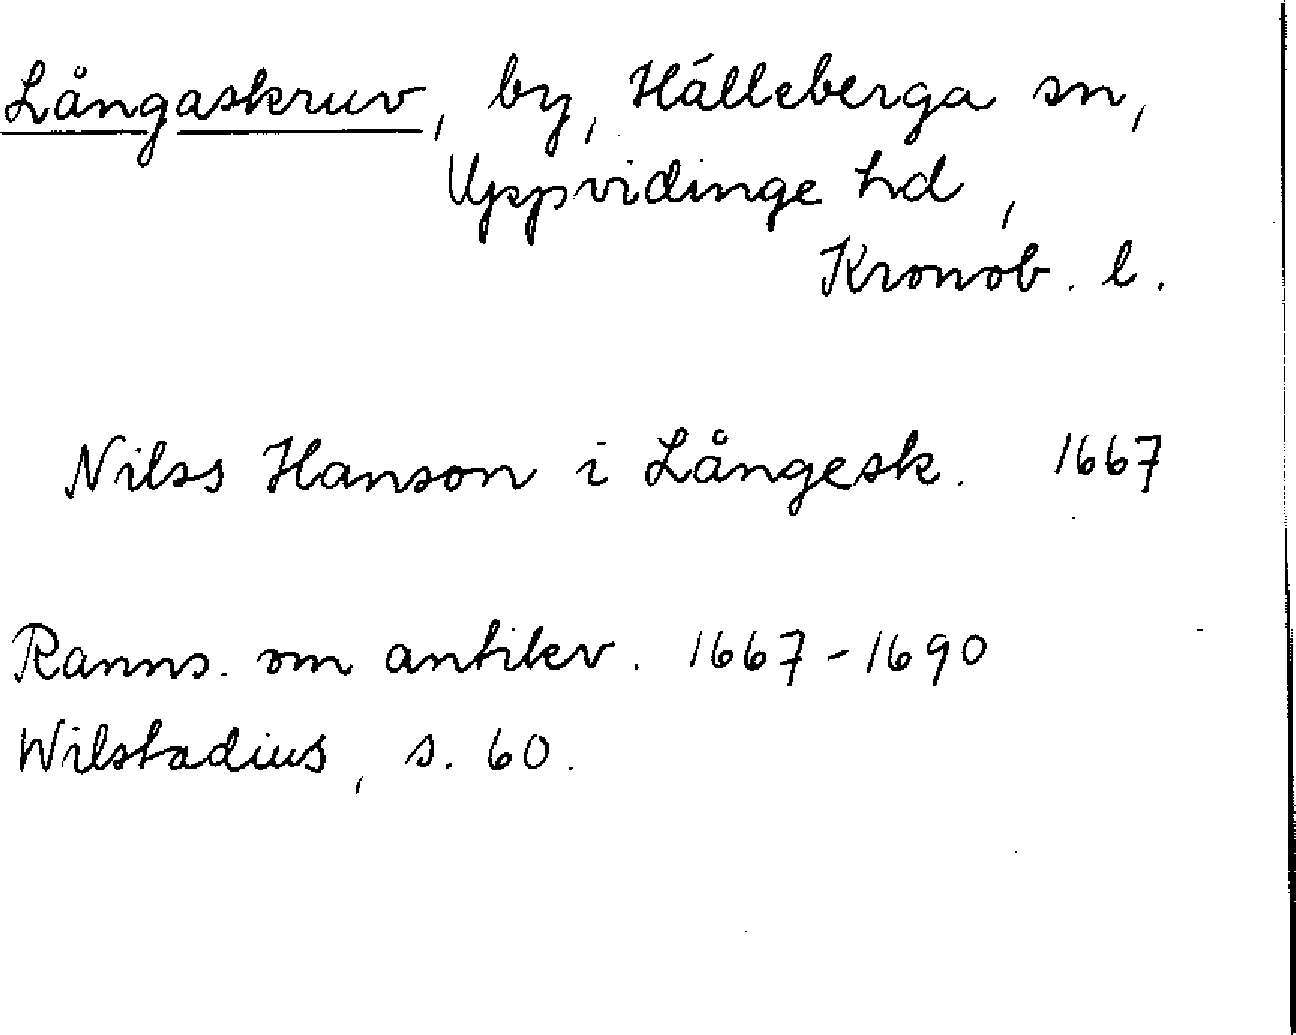 Långaskruv, by, Hälleberga sn,
Uppvidinge hd,
Kronob. l.
Nilss Hanson i Långesk. 1667
Ranns. om antikv. 1667-1690
Wilstadius, s. 60.